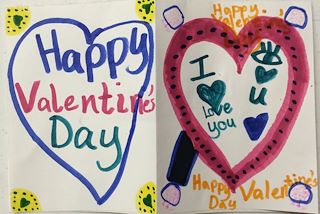 Happy
Valentine's
Day
Happy
Valentine's
I
u
Love
you
Happy Valentine's
Day